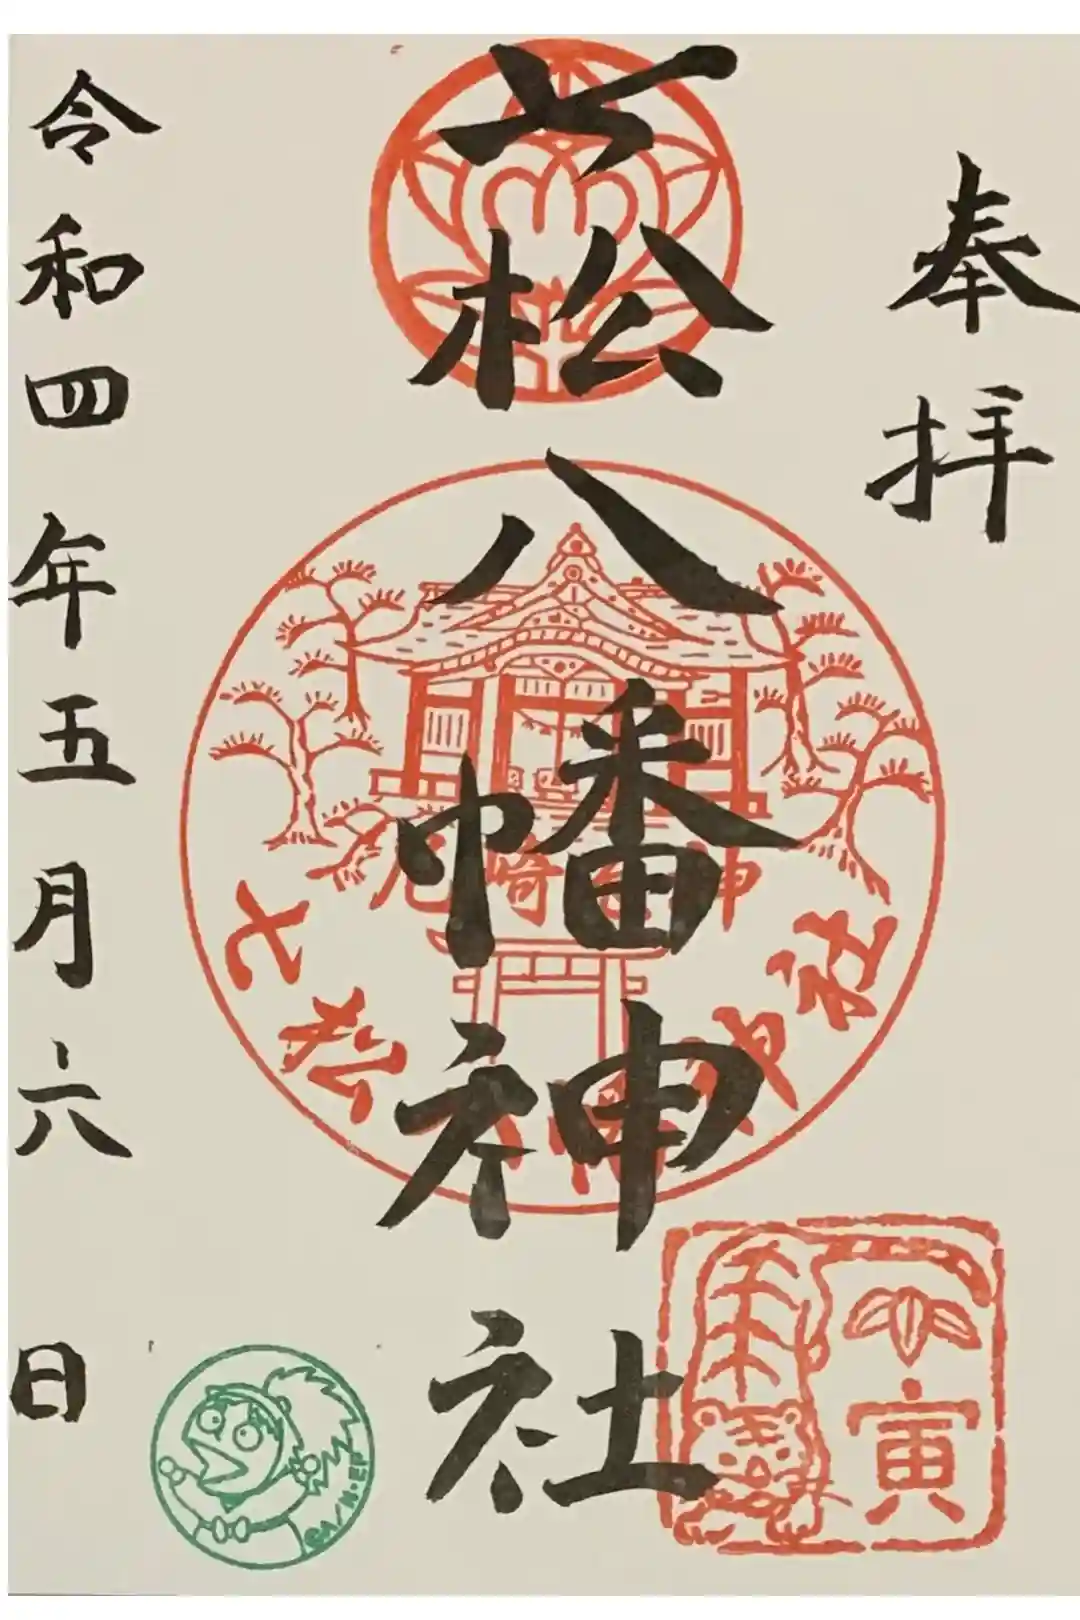 奉拝
七松八幡神社
令和四年五月六日
七松八幡神社
寅